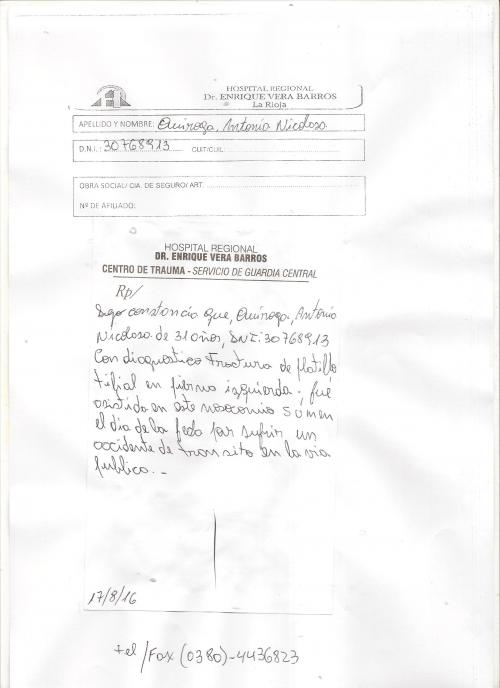 HOSPITAL REGIONAL
Dr. ENRIQUE VERA BARROS
La Rioja
APELLIDO Y NOMBRE: Quiroga, Antonia Nicolasa
D.N.I.: 30768913 CUIT/CUIL:
OBRA SOCIAL/ CIA. DE SEGURO/ ART
Nº DE AFILIADO:
HOSPITAL REGIONAL
DR. ENRIQUE VERA BARROS
CENTRO DE TRAUMA - SERVICIO DE GUARDIA CENTRAL
Rp/
Dejo constancia que, Quiroga, Antonia
Nicolasa de 31 años, DNI: 30768913
Con diagnostico Fractura de platillo
tibial en pierna izquierda, fué
asistida en este nosocomio
el dia de la fecha por sufrir un
accidente de transito en la via
publica.-
17/8/16
tel/Fax (0380)-4436823